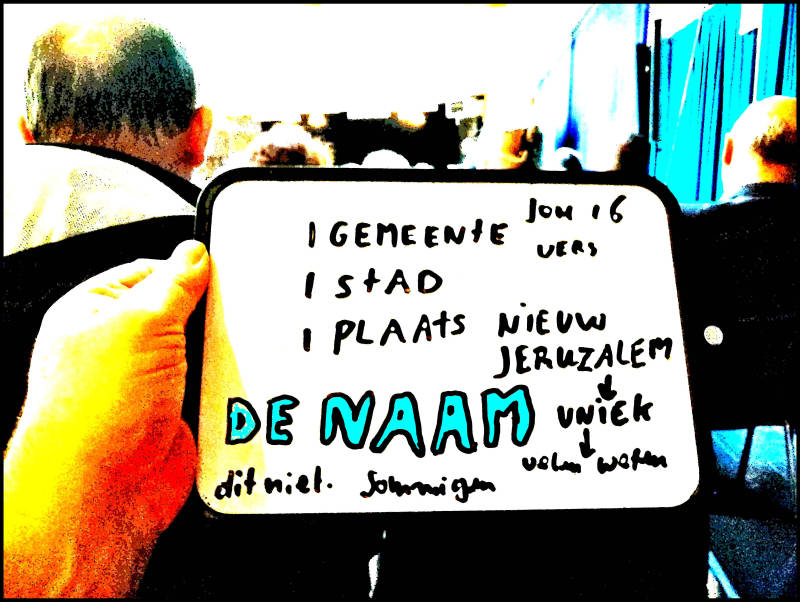 1 GEMEENTE JOH 16
VERS
1 StAD
1 PLAAtS NIEUW
JERUZALEM
DE NAAM UNIEK
velen weten
dit niet. Sommigen